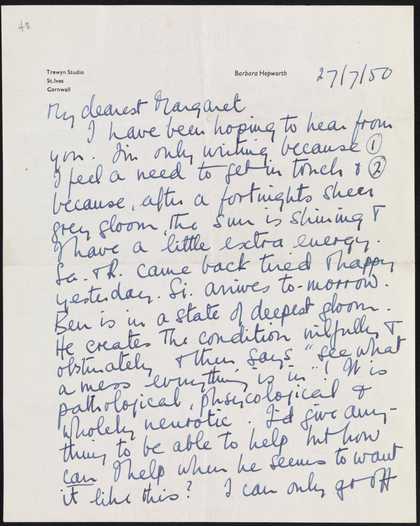 48
Trewyn Studio
St. Ives
Cornwall
Barbara Hepworth
27/7/50
My dearest Margaret
I have been hoping to hear from
you. I'm only writing because ①
I feel a need to get in touch & ②
because, after a fortnights sheer
grey gloom, the sun is shining &
I have a little extra energy.
Sa. & R. came back tired & happy
yesterday. Si. arrives to-morrow.
Ben is in a state of deepest gloom.
He creates the condition wilfully &
obstinately & then says "see what
a mess everything is in"! It is
pathological, physcological &
wholely neurotic. I'd give any-
thing to be able to help but how
can I help when he seems to want
it like this? I can only go off